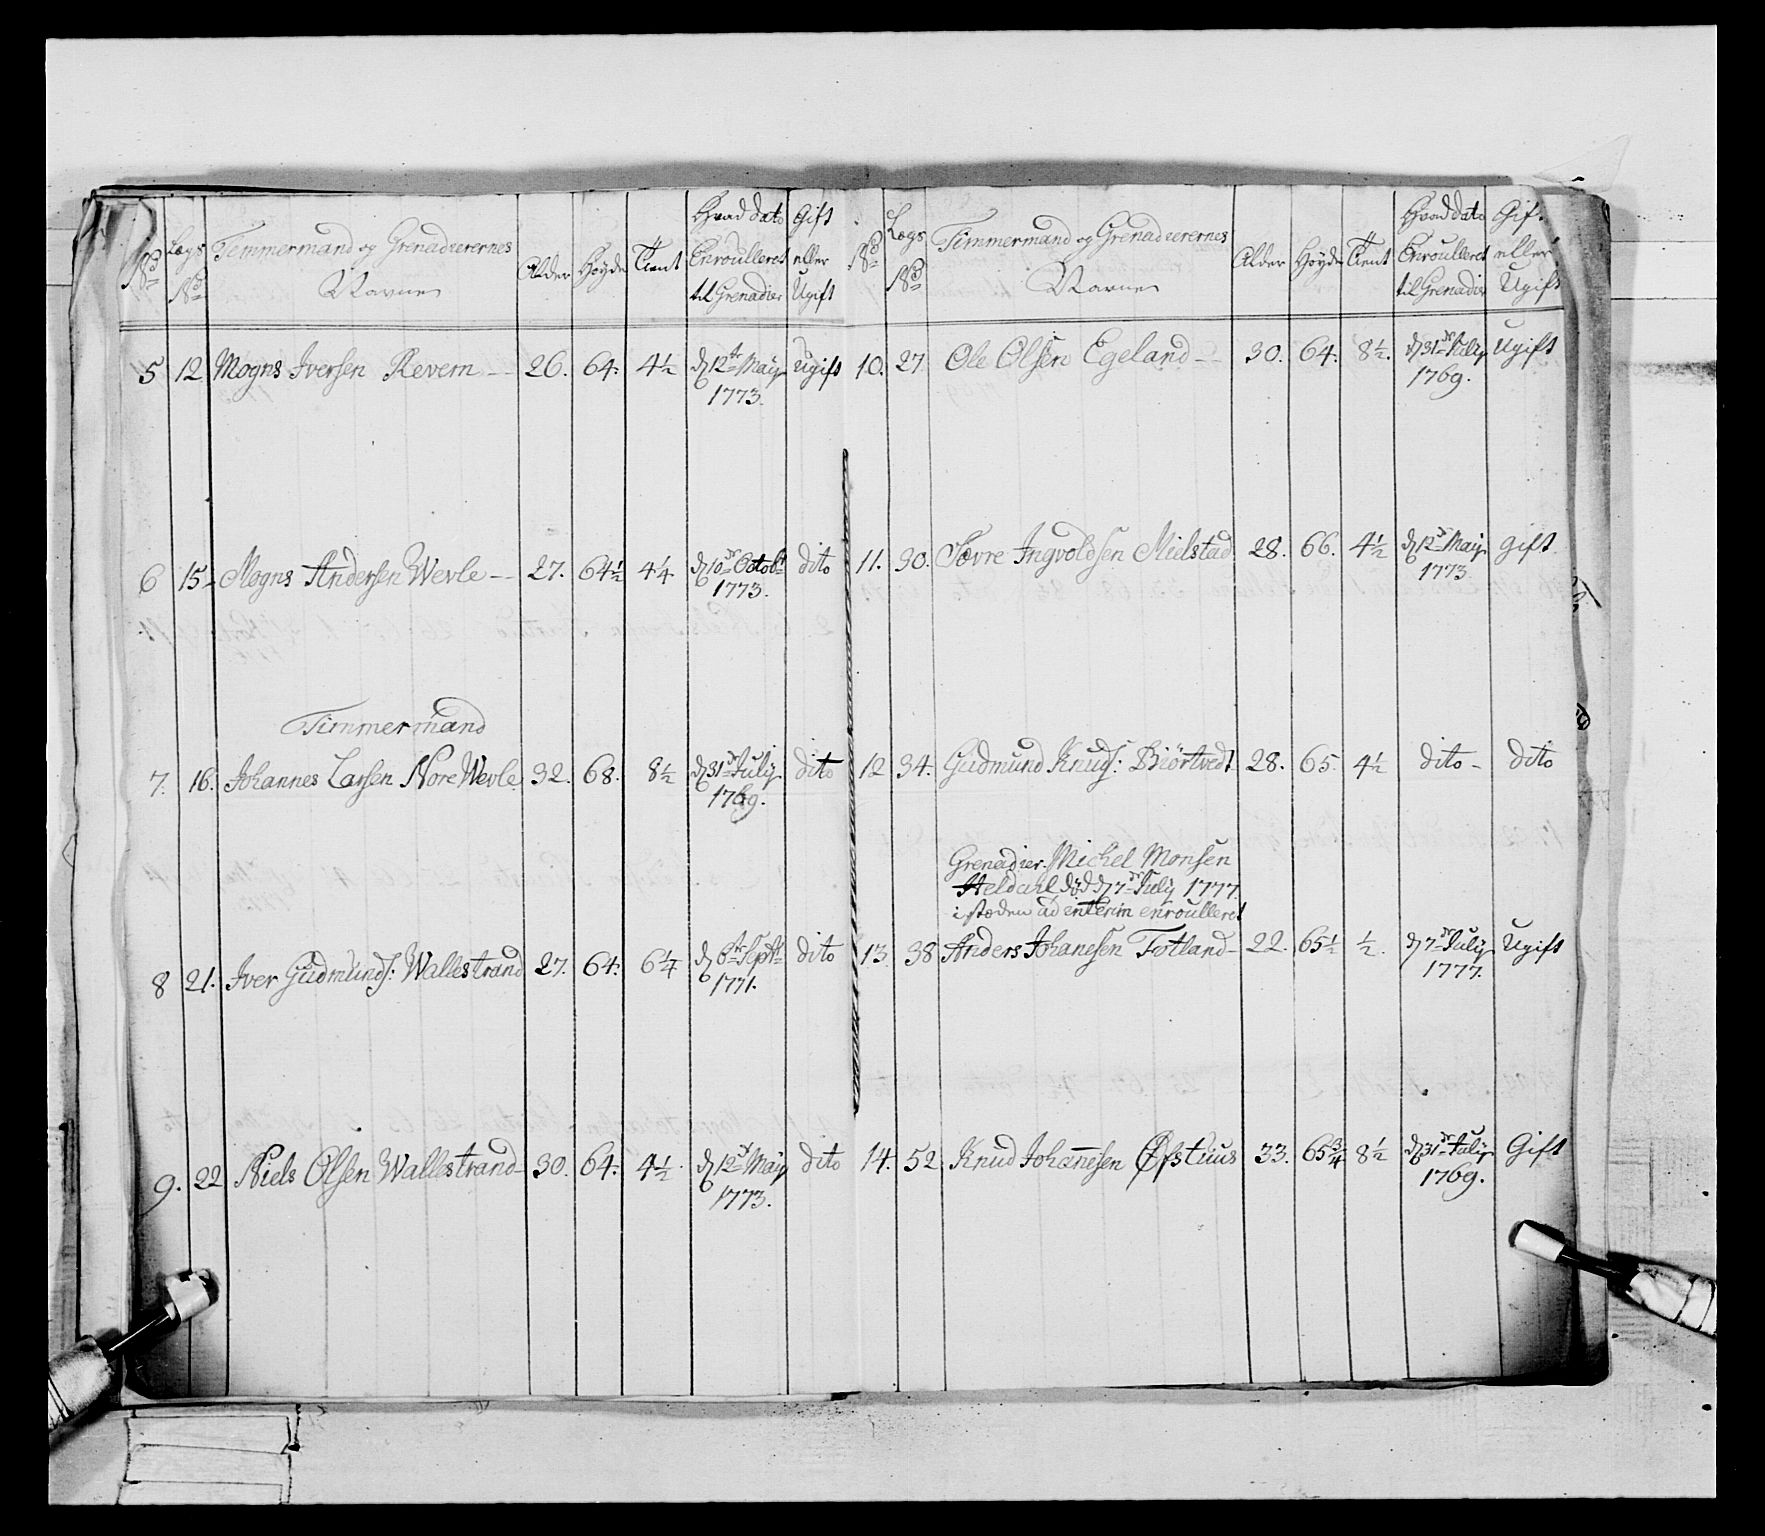 No Lægs No Timmermand og Grenadeerernes Navne Alder Høyde Tient Hvad dato Enroulleret til Grenadier Gift eller Ugift
5 12 Mogns Iversen Revem — 26. 64. 4½ d 12te Maij 1773. Ugift
6 15 Mogns Andersen Wevle — 27. 64½ 4¼ d 10de Octobr 1773. dito
Timmermand
7. 16. Johannes Larsen Nore Wevle 32. 68. 8½ d 31de Julij 1769. dito
8 21. Iver Gudmunds: Wallestrand 27. 64. 6¼ d 6te Septbr 1771. dito
9. 22 Niels Olsen Wallestrand 30. 64. 4½ d 12te Maij 1773. dito
No Lægs No Timmermand og Grenadeerernes Navne Alder Høyde Tient Hvad dato Enroulleret til Grenadier Gift eller Ugift
10. 27 Ole Olsen Egeland — 30. 64. 8½. d 31de Julij 1769. Ugift
11. 30. Siovre Ingvoldsen Mielstad 28. 66. 4½ d 12te Maij 1773 gift
12 34. Gudmund Knuds: Biörtvedt 28. 65. 4½ dito — dito
Grenadier Michel Monsen
Heldahl död d 7de July 1777.
i stæden ad interim enroulleret
13. 38 Anders Johanesen Totland — 22. 65½ ½. d 7de Julij 1777. Ugift
14. 52 Knud Johannesen Øfstuus 33. 65¾ 8½ d 31de Julij 1769. Gift